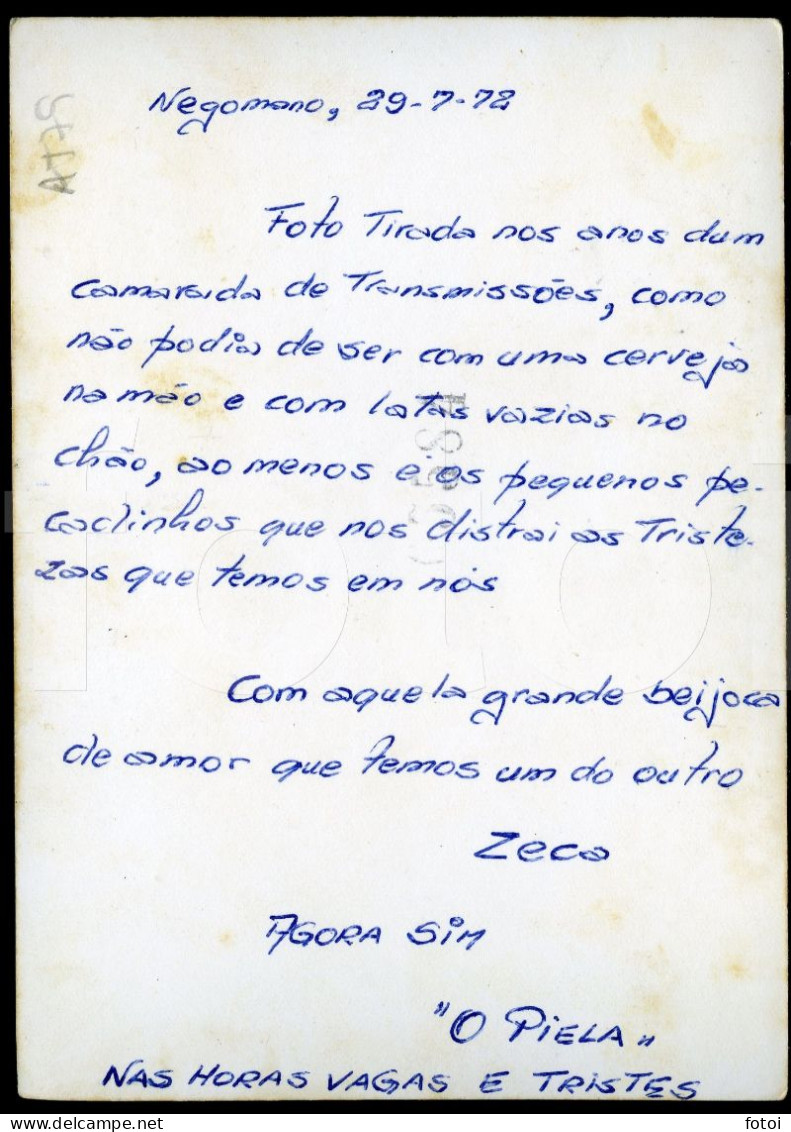 Negomano, 29-7-72
AT79
Foto Tirada nos anos dum
camarada de Transmissões, como
não podia de ser com uma cerveja
na mão e com latas vazias no
chão, ao menos é os pequenos pe-
cadinhos que nos distrai as Triste-
zas que temos em nós
Com aquela grande beijoca
de amor que temos um do outro
Zeca
AGORA SiM
"O PiELA"
NAS HORAS VAGAS E TRiSTES
fotoi